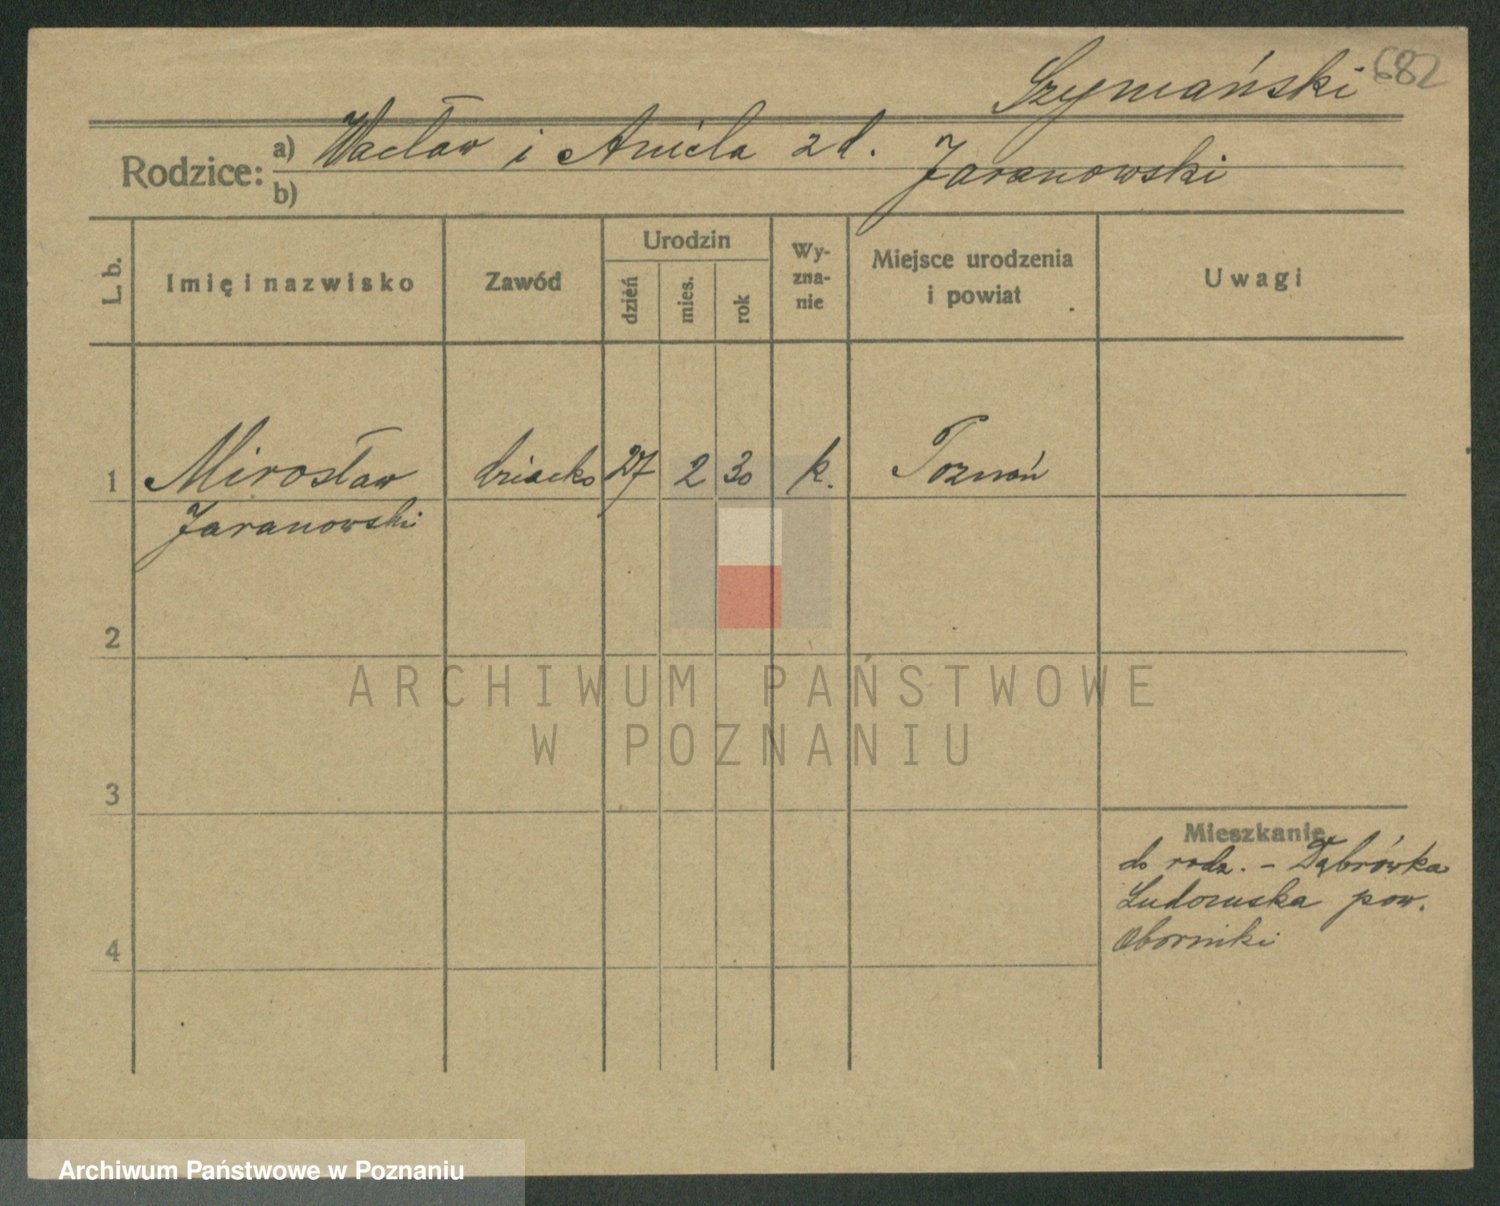 Szymański 682
Rodzice: a) Wacław i Aniela z d. Jaranowski
b)
L. b. Imię i nazwisko Zawód Urodzin dzień mies. rok Wyznanie Miejsce urodzenia i powiat Uwagi
1 Mirosław dziecko 27 2 30 k. Poznań
Jaranowski
2
ARCHIWUM PAŃSTWOWE
W POZNANIU
3
Mieszkanie
do rodz. - Dąbrówka
Ludomska pow.
Oborniki
4
Archiwum Państwowe w Poznaniu